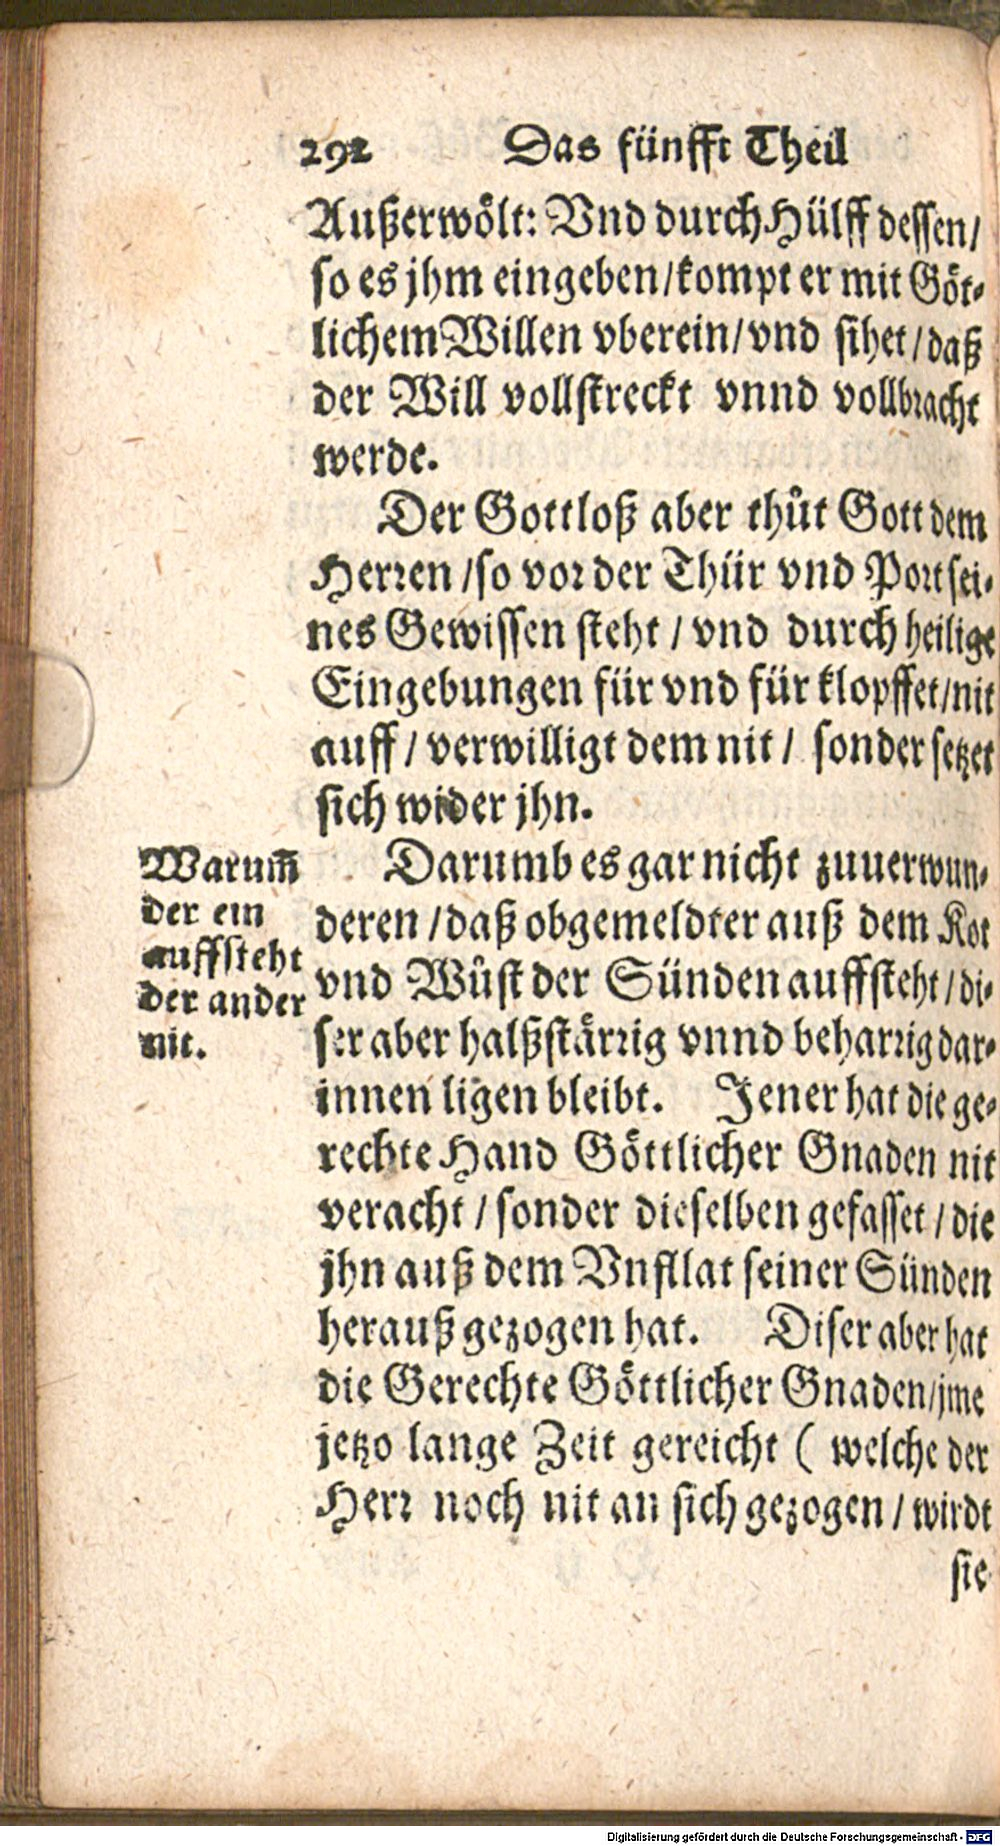 292 Das fünfft Theil
Außerwölt: Vnd durch Hülff dessen/
so es jhm eingeben/kompt er mit Göt-
lichem Willen vberein/vnd sihet/daß
der Will vollstreckt vnnd vollbracht
werde.
Der Gottloß aber thůt Gott dem
Herren/so vor der Thür vnd Port sei-
nes Gewissen steht/vnd durch heilige
Eingebungen für vnd für klopffet/nit
auff/verwilligt dem nit/ sonder setzet
sich wider jhn.
Darumb es gar nicht zuuerwun-
deren/daß obgemeldter auß dem Kot
vnd Wůst der Sünden auffsteht/di-
ser aber halßstärrig vnnd beharrig dar-
innen ligen bleibt. Jener hat die ge-
rechte Hand Göttlicher Gnaden nit
veracht/sonder dieselben gefasset/die
jhn auß dem Vnflat seiner Sünden
herauß gezogen hat. Diser aber hat
die Gerechte Göttlicher Gnaden/jme
jetzo lange Zeit gereicht ( welche der
Herr noch nit an sich gezogen/wirdt
sie
Warum̃
der ein
auffsteht
der ander
nit.
Digitalisierung gefördert durch die Deutsche Forschungsgemeinschaft - DFG